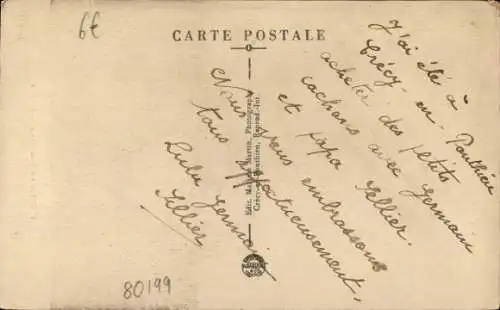 6€
CARTE POSTALE
J'ai été à
Crécy-en-Ponthieu
acheter des petits
cochons avec Germain
et papa Sellier.
Nous vous embrassons
tous affectueusement.
Lulu Germain
Sellier
Edit. Maison Maron, Photographe
Crécy-en-Ponthieu, Reprod. Int.
80199